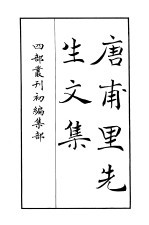 唐甫里先
生文集
四部叢刊初編集部